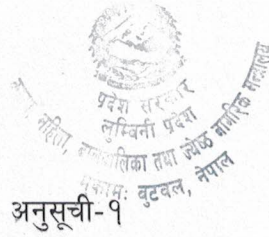 प्रदेश सरकार
लुम्विनी प्रदेश
महिला, बालबालिका तथा ज्येष्ठ नागरिक मन्त्रालय
मुकामः बुटवल, नेपाल
अनुसूची-१